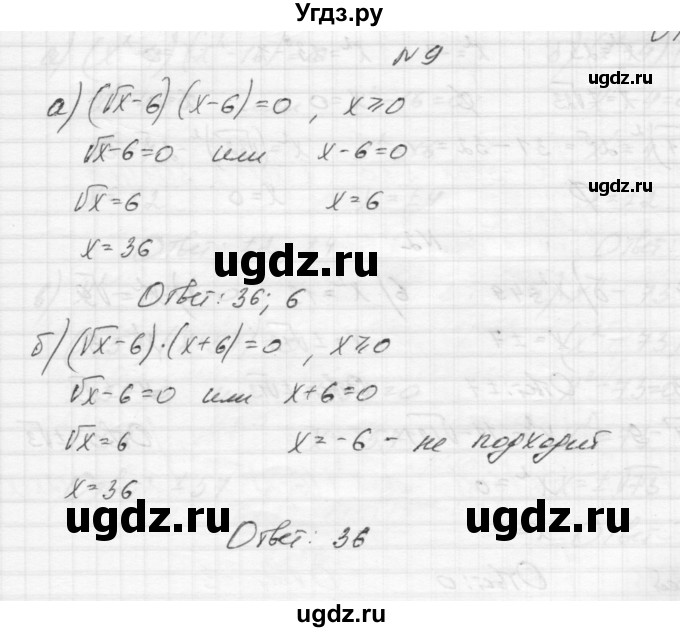 Угдз.ру
№9
а) (√x-6)(x-6)=0, x⩾0
√x-6=0 или x-6=0
√x=6 x=6
x=36
Ответ: 36; 6
б) (√x-6)·(x+6)=0, x⩾0
√x-6=0 или x+6=0
√x=6 x=-6 - не подходит
x=36
Ответ: 36
ugdz.ru
ugdz.ru
ugdz.ru
ugdz.ru
ugdz.ru
ugdz.ru
ugdz.ru